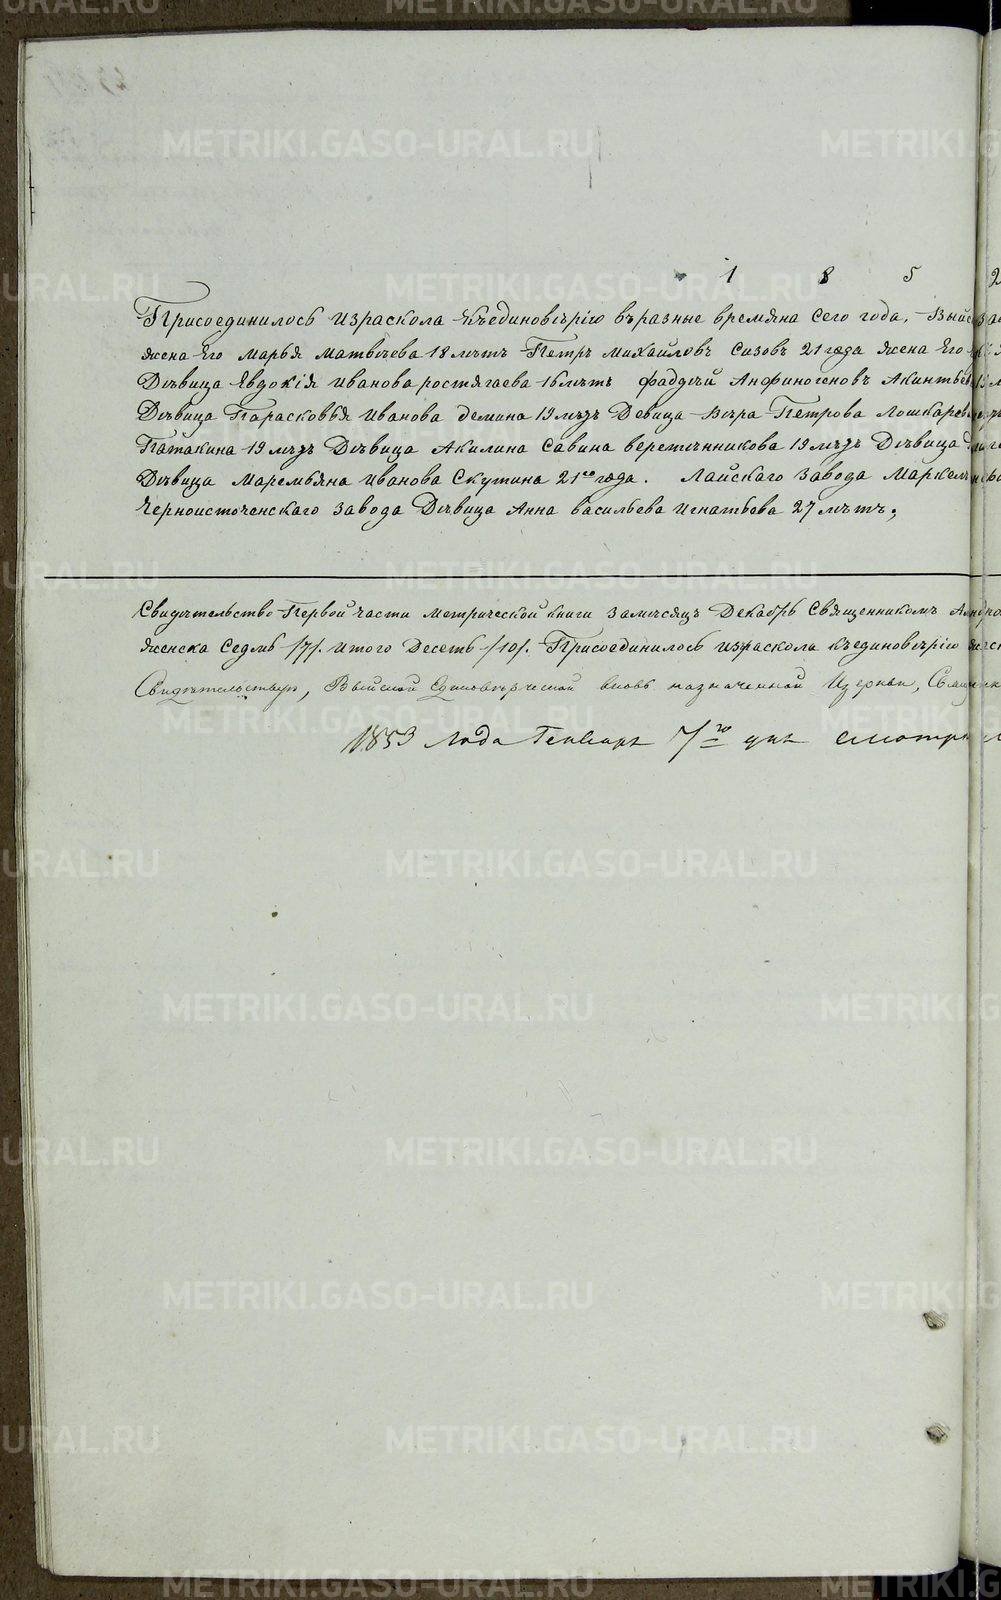 1 8 5 2
Присоединилось израскола Къединовѣрію въразные времяна сего года, Выйс
жена Его Марья Матвѣева 18 лѣтъ Петръ Михайловъ Сизовъ 21 года жена Его
Дѣвица Евдокія Иванова ростягаева 16 лѣтъ Фаддѣй Анфиногеновъ Акинтьев
Дѣвица Парасковья Иванова демина 19 лѣтъ Девица Вѣра Петрова Лошкарев
Патакина 19 лѣтъ Дѣвица Акилина Савина веретѣнникова 19 лѣтъ Дѣвица
Дѣвица Маремьяна Иванова Скутина 21го года. Лайскаго Завода Маркелъ
Черноисточенскаго Завода Дѣвица Анна васильева Игнатьева 27 лѣтъ,
Свидѣтельство Первой части метрической книги Замѣсяцъ Декабрь Священникомъ
женска Седмь /7/. итого Десеть /10/. Присоединилось израскола къединовѣрію
Свидѣтельствую, Выйской Единовѣрческой вновь назначенной Церкви,
1853 года Генваря 7го дня смотрѣл
METRIKI.GASO-URAL.RU